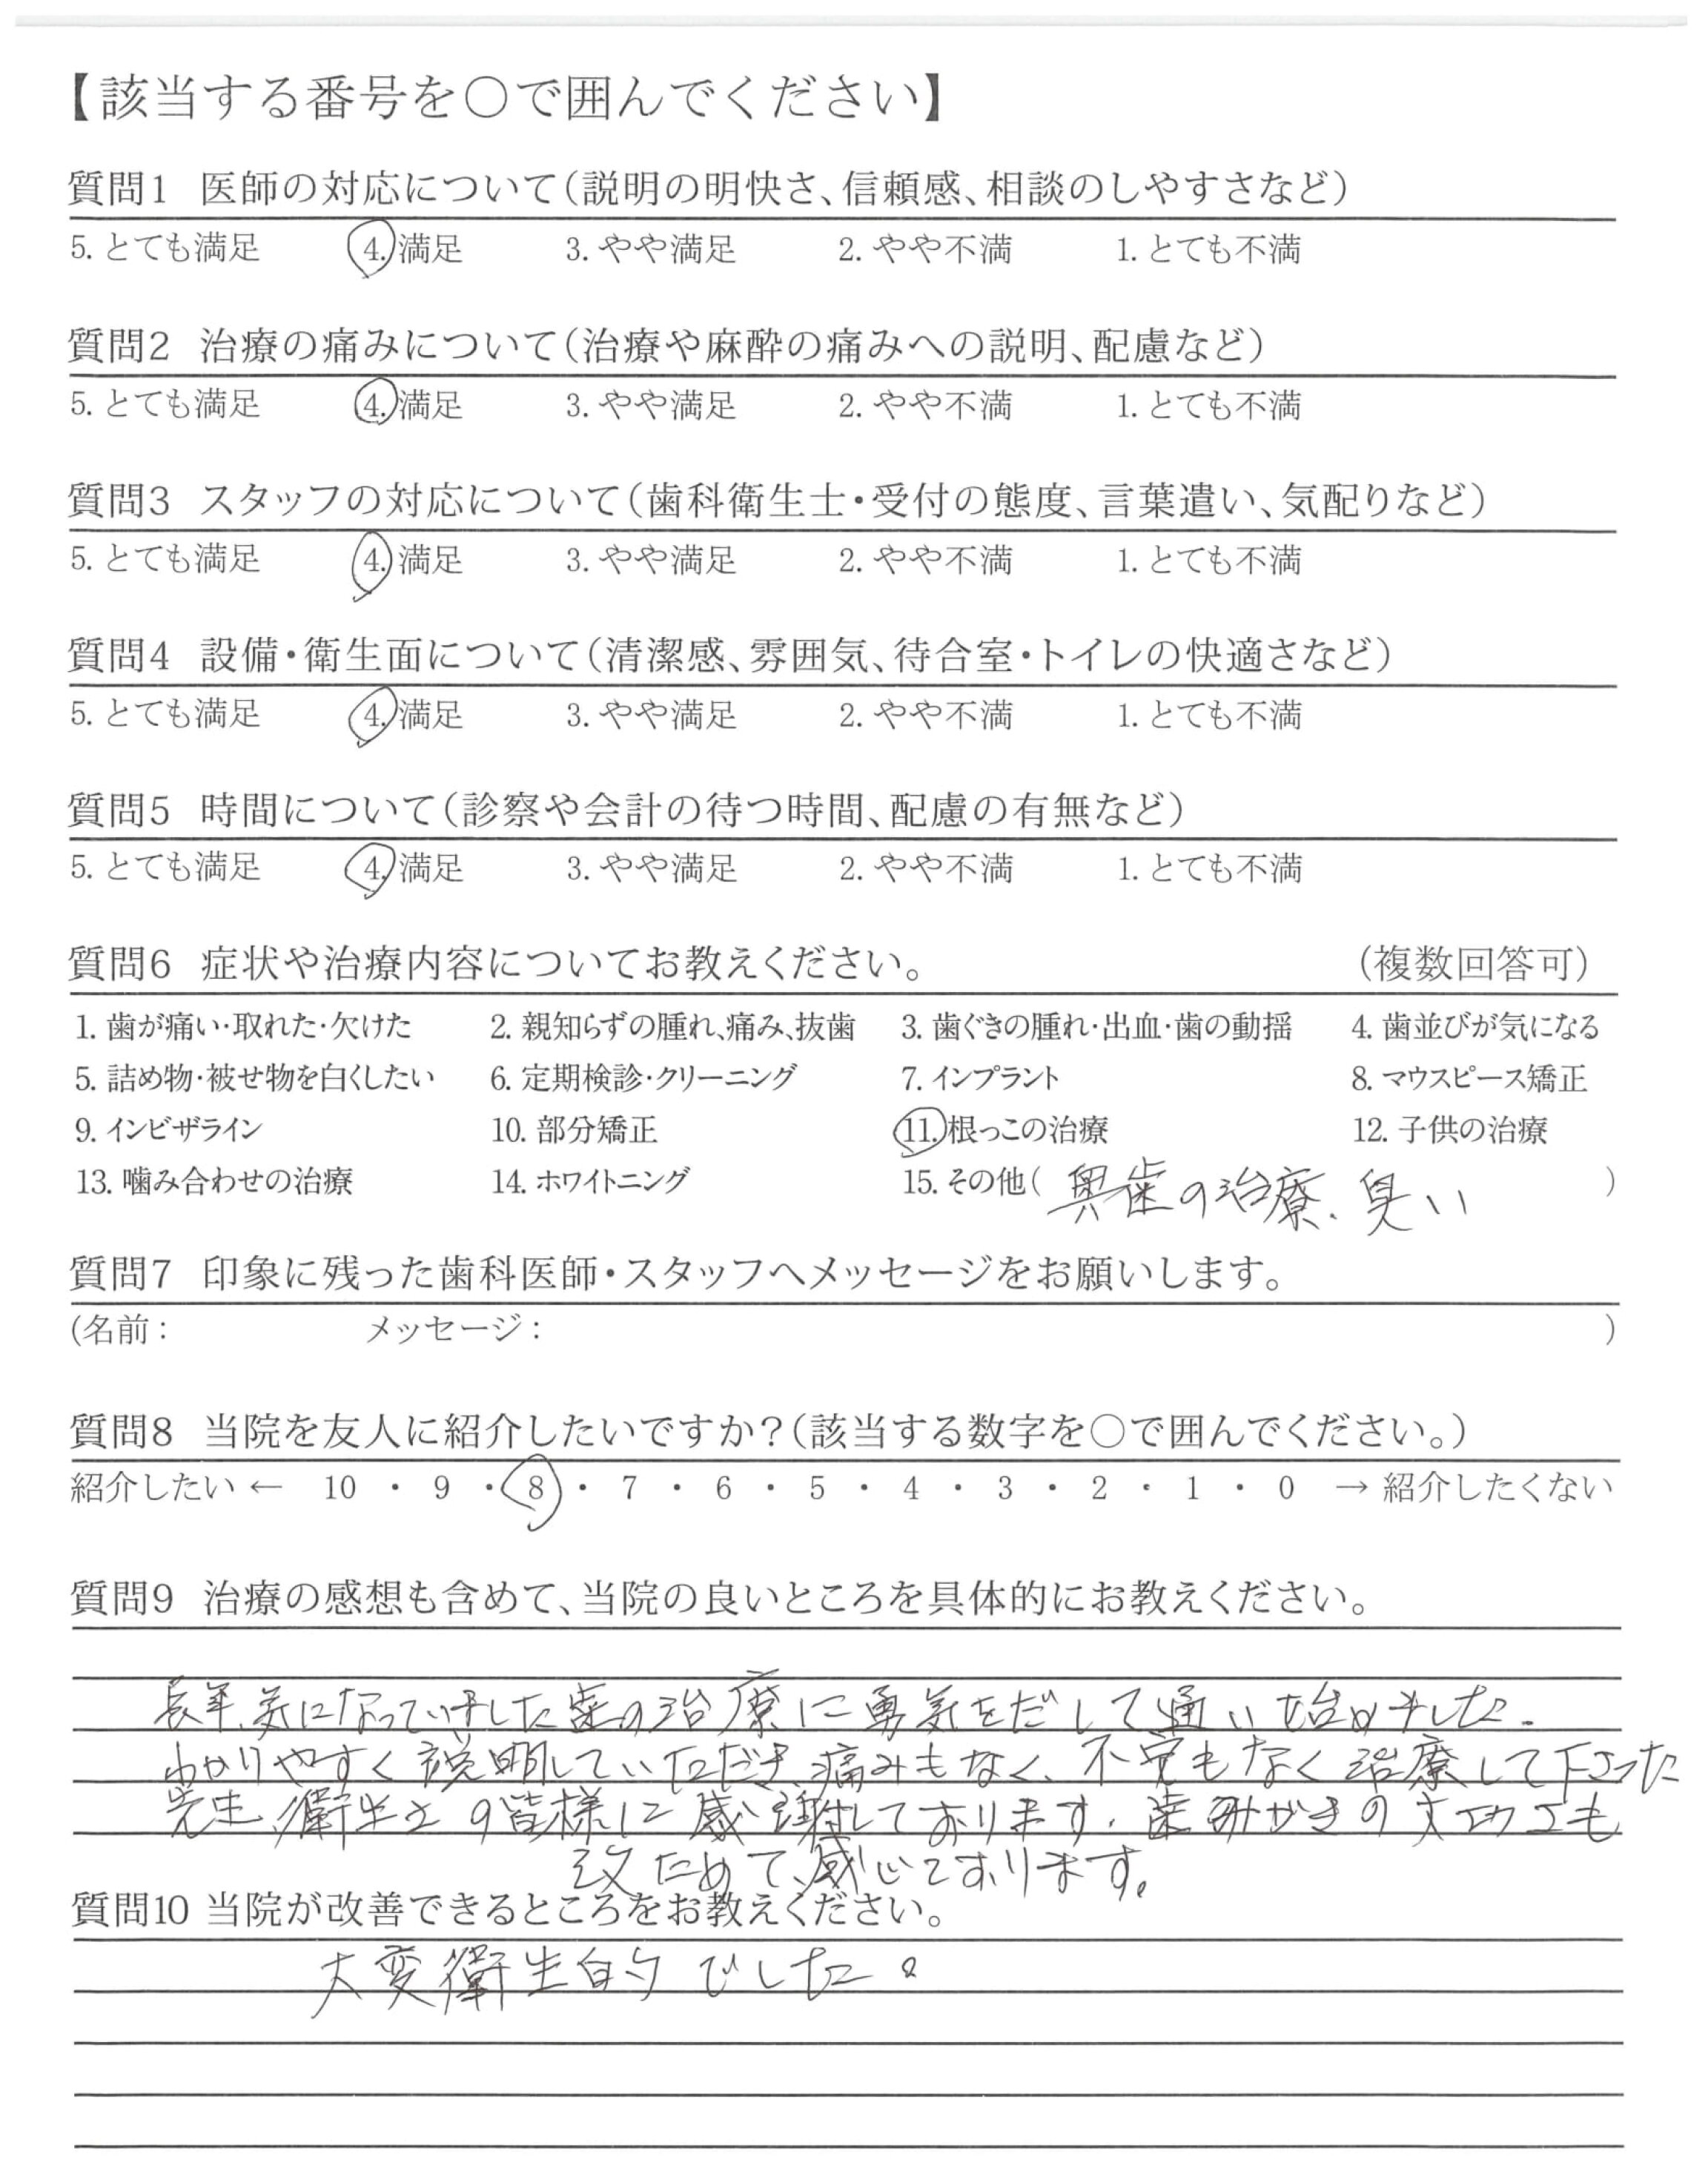 【該当する番号を○で囲んでください】
質問1 医師の対応について（説明の明快さ、信頼感、相談のしやすさなど）
5. とても満足 4. 満足 3. やや満足 2. やや不満 1. とても不満
質問2 治療の痛みについて（治療や麻酔の痛みへの説明、配慮など）
5. とても満足 4. 満足 3. やや満足 2. やや不満 1. とても不満
質問3 スタッフの対応について（歯科衛生士・受付の態度、言葉遣い、気配りなど）
5. とても満足 4. 満足 3. やや満足 2. やや不満 1. とても不満
質問4 設備・衛生面について（清潔感、雰囲気、待合室・トイレの快適さなど）
5. とても満足 4. 満足 3. やや満足 2. やや不満 1. とても不満
質問5 時間について（診察や会計の待つ時間、配慮の有無など）
5. とても満足 4. 満足 3. やや満足 2. やや不満 1. とても不満
質問6 症状や治療内容についてお教えください。 （複数回答可）
1. 歯が痛い・取れた・欠けた 2. 親知らずの腫れ、痛み、抜歯 3. 歯ぐきの腫れ・出血・歯の動揺 4. 歯並びが気になる
5. 詰め物・被せ物を白くしたい 6. 定期検診・クリーニング 7. インプラント 8. マウスピース矯正
9. インビザライン 10. 部分矯正 11. 根っこの治療 12. 子供の治療
13. 噛み合わせの治療 14. ホワイトニング 15. その他（ 奥歯の治療、臭い ）
質問7 印象に残った歯科医師・スタッフへメッセージをお願いします。
（名前： メッセージ： ）
質問8 当院を友人に紹介したいですか？（該当する数字を○で囲んでください。）
紹介したい ← 10 ・ 9 ・ 8 ・ 7 ・ 6 ・ 5 ・ 4 ・ 3 ・ 2 ・ 1 ・ 0 → 紹介したくない
質問9 治療の感想も含めて、当院の良いところを具体的にお教えください。
長年、気になっていました歯の治療に勇気をだして通い始めました。
わかりやすく説明していただき、痛みもなく、不安もなく治療して下さった
先生、衛生士の皆様に感謝しております。歯みがきの大切さも
改ためて、感じております。
質問10 当院が改善できるところをお教えください。
大変衛生的でした。